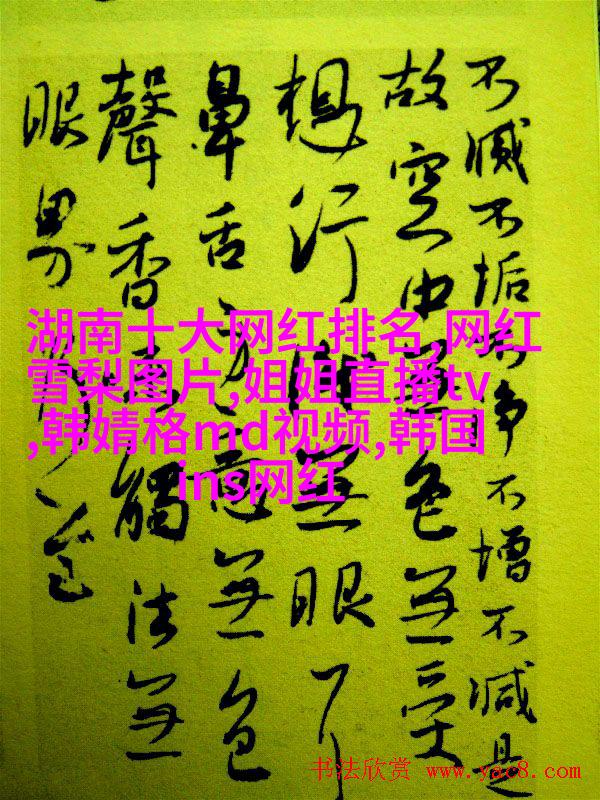 不滅不垢不净不增不減是
故空中無色無受
想行無眼耳
鼻舌身意無色
聲香味觸法無
眼界
湖南十大网红排名,网红
雪梨图片,姐姐直播tv
,韩婧格md视频,韩国
ins网红
书法欣赏 www.yac8.com